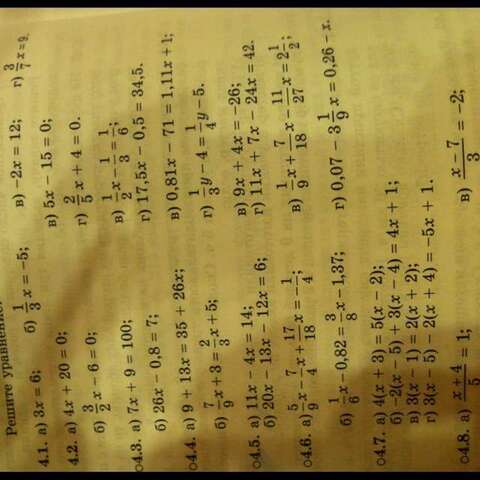 Решите уравнение:
4.1. а) 3x = 6; б) 1/3 x = −5; в) −2x = 12; г) 3/7 x = 9.
4.2. а) 4x + 20 = 0; в) 5x − 15 = 0;
б) 3/2 x − 6 = 0; г) 2/5 x + 4 = 0.
○4.3. а) 7x + 9 = 100; в) 1/2 x − 1/3 = 1/6;
б) 26x − 0,8 = 7; г) 17,5x − 0,5 = 34,5.
○4.4. а) 9 + 13x = 35 + 26x; в) 0,81x − 71 = 1,11x + 1;
б) 7/9 x + 3 = 2/3 x + 5; г) 1/3 y − 4 = 1/4 y − 5.
○4.5. а) 11x − 4x = 14; в) 9x + 4x = −26;
б) 20x − 13x − 12x = 6; г) 11x + 7x − 24x = 42.
○4.6. а) 5/9 x − 7/4 x + 17/18 x = −1/4; в) 1/9 x + 7/18 x − 11/27 x = 2 1/2;
б) 1/6 x − 0,82 = 3/8 x − 1,37; г) 0,07 − 3 1/9 x = 0,26 − x.
○4.7. а) 4(x + 3) = 5(x − 2);
б) −2(x − 5) + 3(x − 4) = 4x + 1;
в) 3(x − 1) = 2(x + 2);
г) 3(x − 5) − 2(x + 4) = −5x + 1.
○4.8. а) (x + 4)/5 = 1; в) (x − 7)/3 = −2;